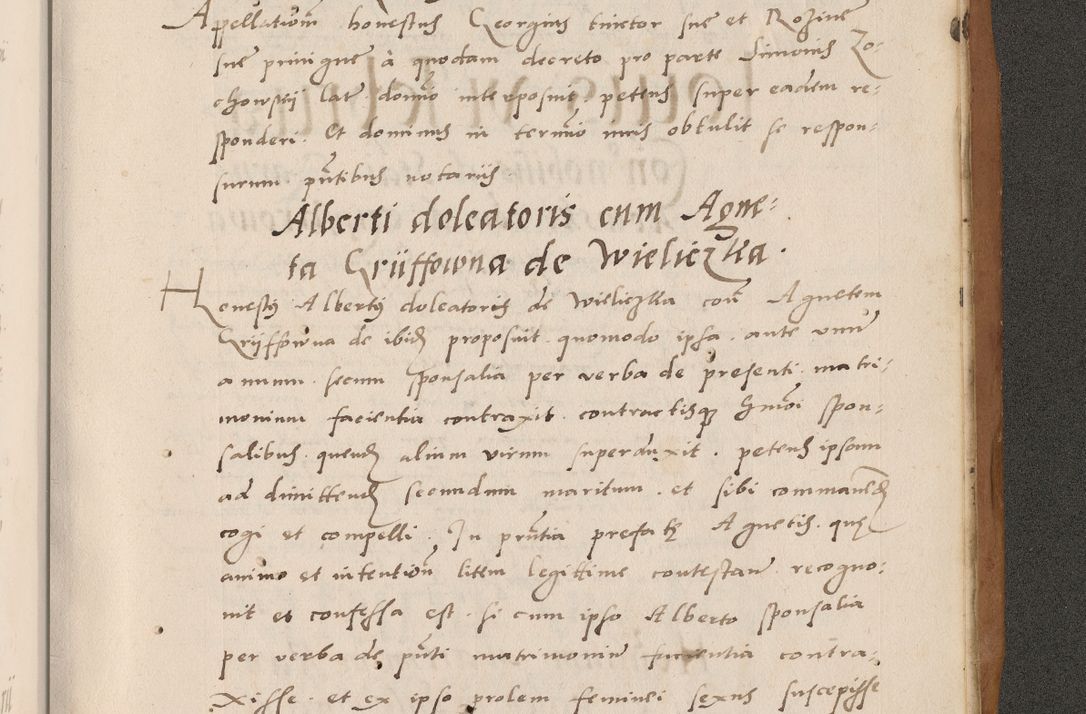 Appellationem honestus Georgius tinctor sue et Rozine
sue priuigne à quodam decreto pro parte Simonis Zo-
chowskij late domino interposuit petens super eadem re-
sponderi. Et dominus in termino iuris obtulit se respon-
surum. pntibus notariis
Alberti doleatoris cum Agne-
ta Griiffowna de Wieliczka.
Honestus Albertus doleatoris de Wieliczka con Agnetem
Griiffowna de ibidem proposuit. quomodo ipsa. ante unum
annum. secum sponsalia per verba de presenti. matri-
monium facientia contraxit. contractisque hmoi spon-
salibus. quendam alium virum superduxit. petens ipsam
ad dimittendum secundum maritum. et sibi commanendum
cogi et compelli. In pntia prefatę Agnetis. quę
animo et intention litem legittime contestan recogno-
uit et confessa est. si cum ipso Alberto sponsalia
per verba de pnti matrimonium facientia contra-
xisse. et ex ipso prolem feminei sexus suscepisse